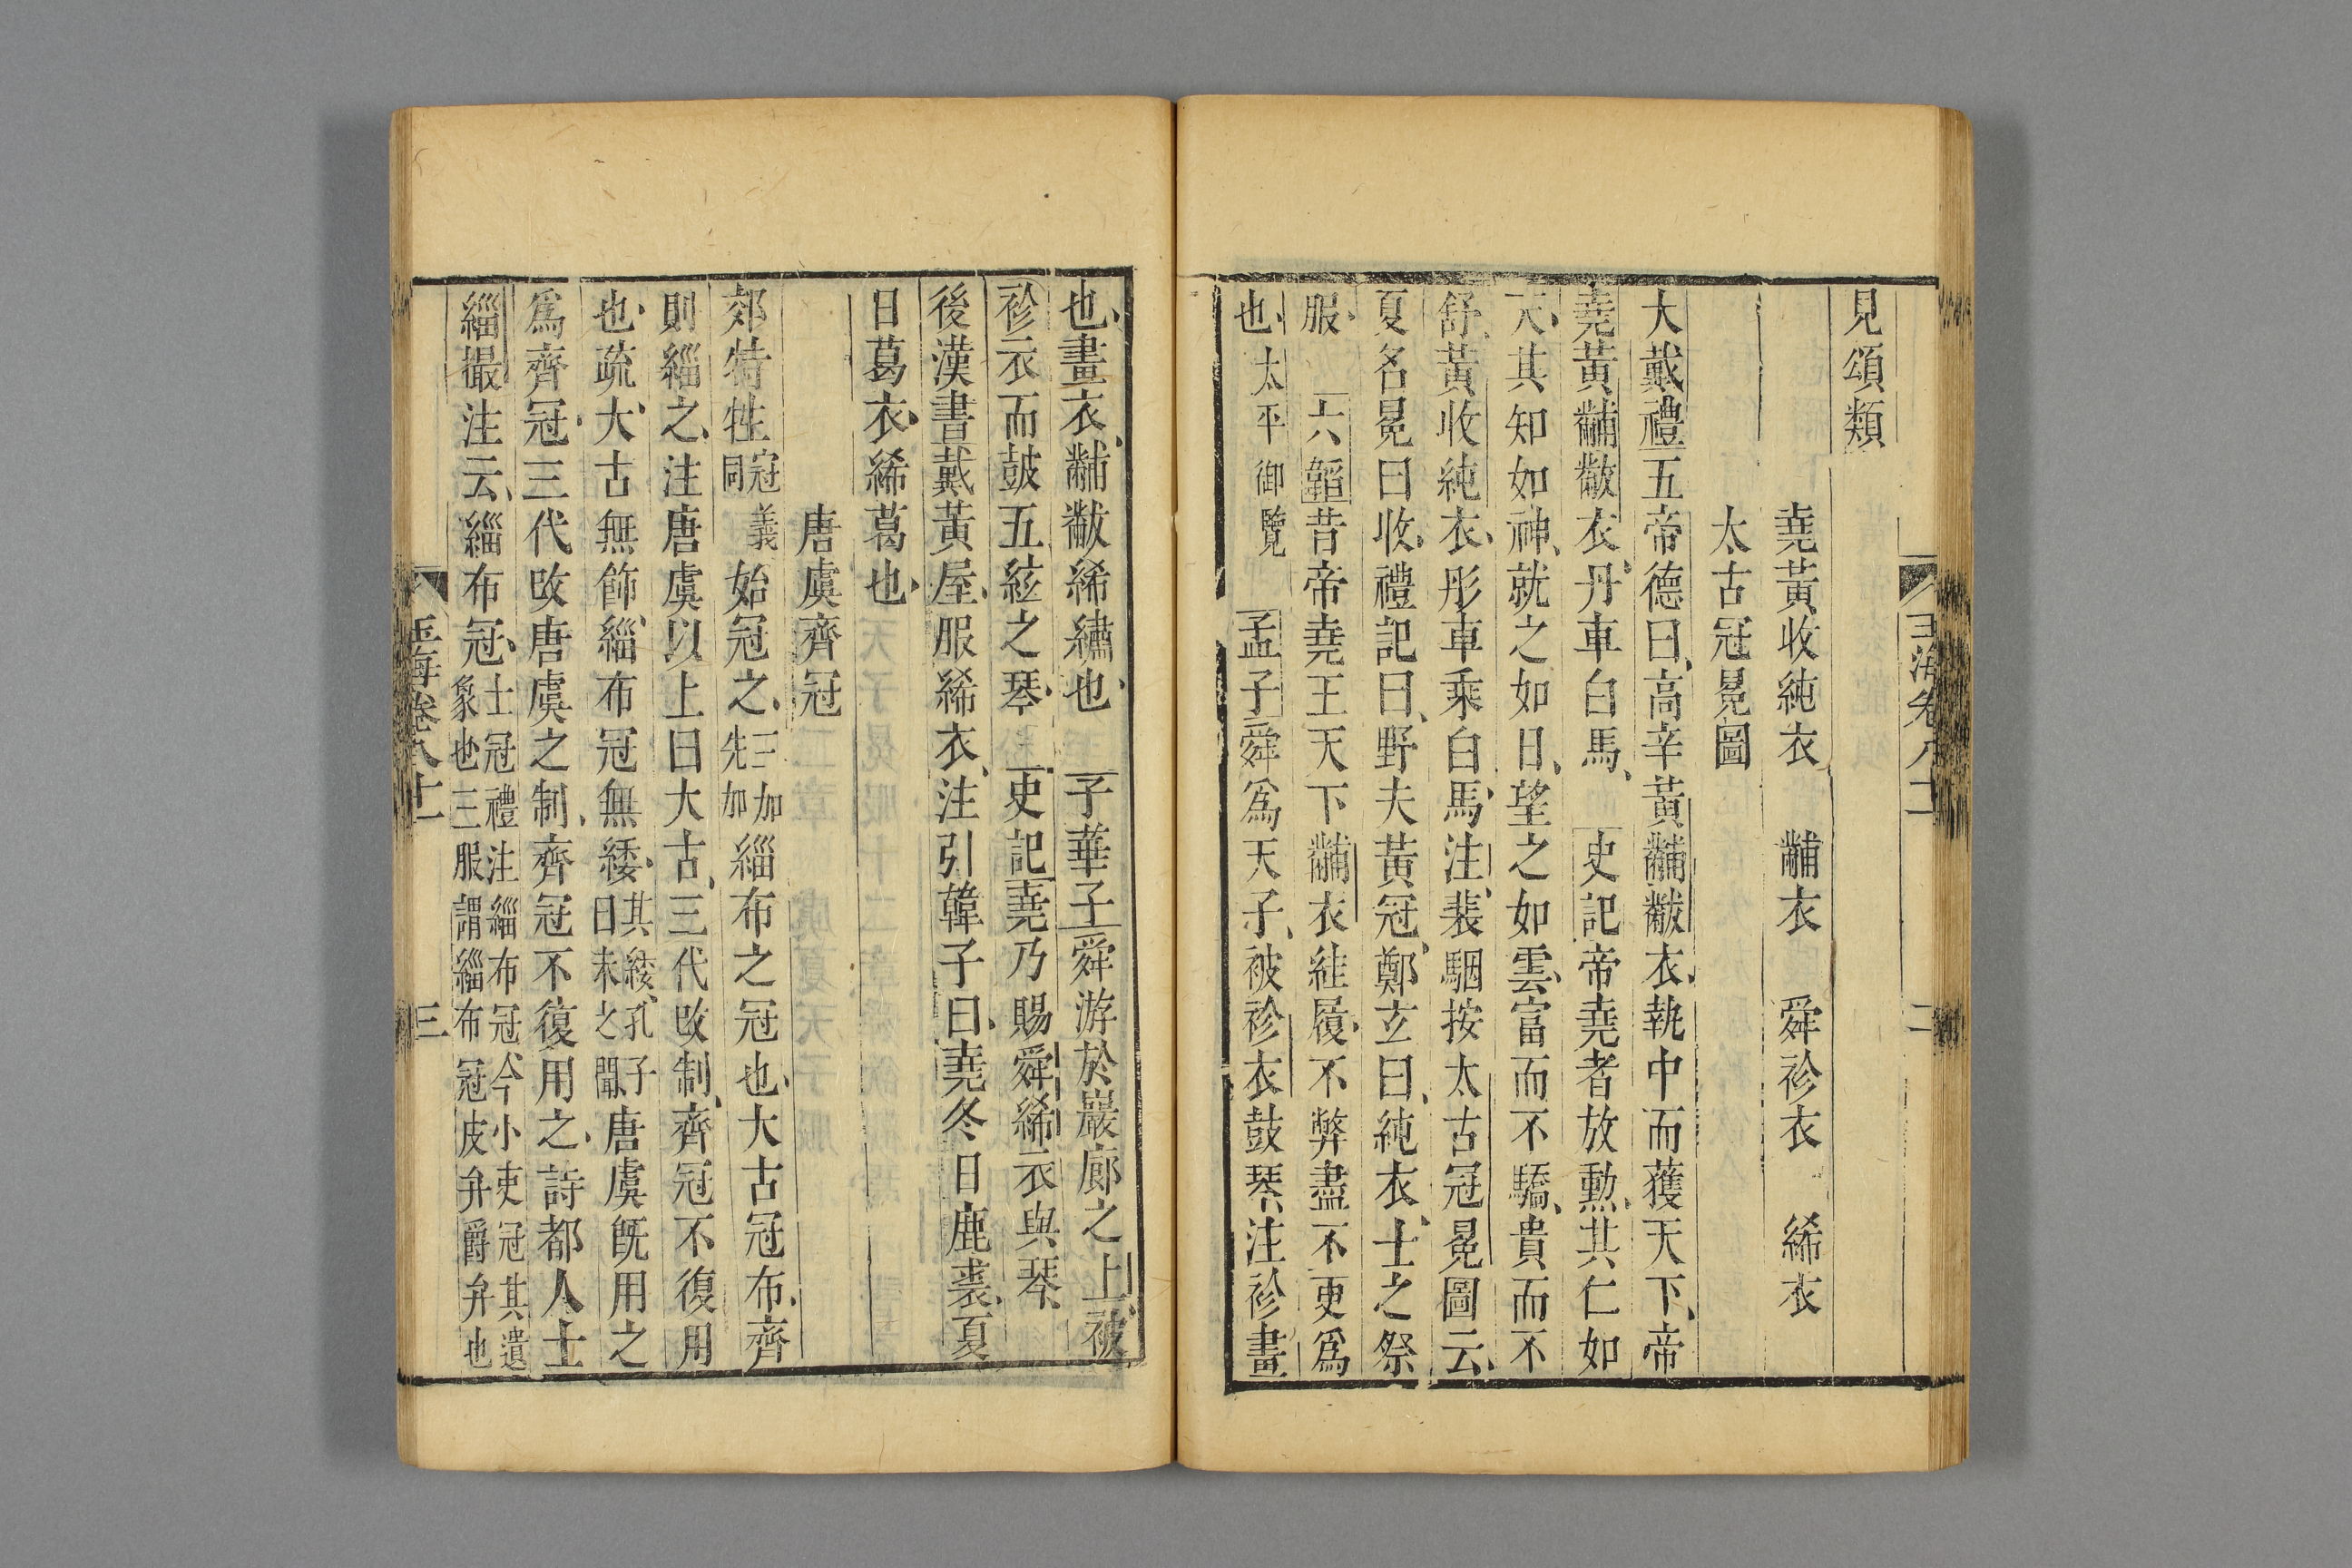 見頌類
堯黃收純衣 黼衣 舜袗衣 絺衣
太古冠冕圖
大戴禮五帝德曰高辛黃黼黻衣執中而獲天下帝
堯黃黼黻衣丹車白馬 史記帝堯者放勲其仁如
天其知如神就之如日望之如雲富而不驕貴而不
舒黃收純衣彤車乘白馬注裴駰按太古冠冕圖云
夏名冕曰收禮記曰野夫黃冠鄭玄曰純衣士之祭
服 六韜昔帝堯王天下黼衣絓履不弊盡不更爲
也太平御覽 孟子舜爲天子被袗衣鼓琴注袗畫
也畫衣黼黻絺繡也 子華子舜游於巖廊之上被
袗衣而鼓五絃之琴 史記堯乃賜舜絺衣與琴
後漢書戴黃屋服絺衣注引韓子曰堯冬日鹿裘夏
日葛衣絺葛也
唐虞齊冠
郊特牲冠義同始冠之三加先加緇布之冠也大古冠布齊
則緇之注唐虞以上曰大古三代改制齊冠不復用
也疏大古無飾緇布冠無緌其緌孔子曰未之聞唐虞旣用之
爲齊冠三代改唐虞之制齊冠不復用之詩都人士
緇撮注云緇布冠士冠禮注緇布冠今小吏冠其遺象也三服謂緇布冠皮弁爵弁也
玉海卷八十二 二
玉海卷八十二 三